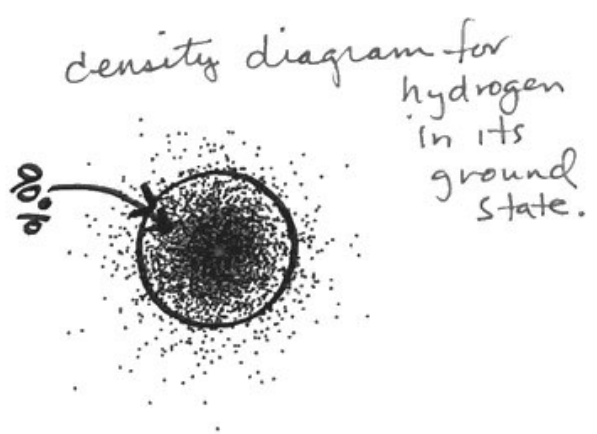 density diagram for
hydrogen
in its
ground
state.